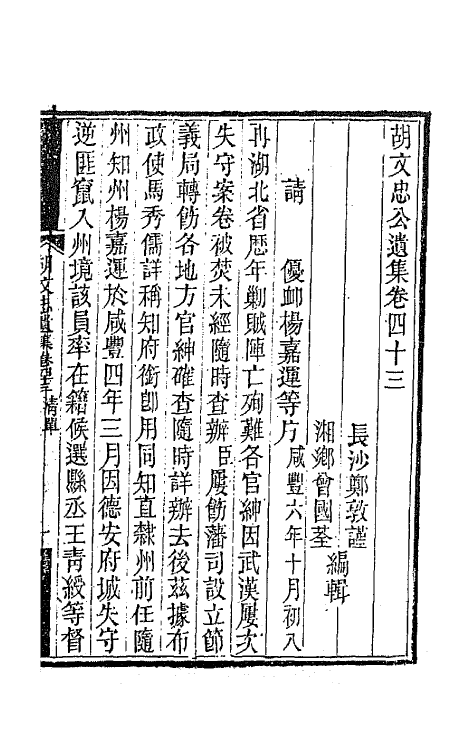 胡文忠公遺集卷四十三
長沙鄭敦謹
湘鄉曾國荃
編輯
請　優卹楊嘉運等片 咸豐六年十月初八
再湖北省歷年剿賊陣亡殉難各官紳因武漢屢次
失守案卷被焚未經隨時查辦臣屢飭藩司設立節
義局轉飭各地方官紳確查隨時詳辦去後茲據布
政使馬秀儒詳稱知府銜卽用同知直隸州前任隨
州知州楊嘉運於咸豐四年三月因德安府城失守
逆匪竄入州境該員率在籍候選縣丞王靑綬等督
胡文忠公遺集卷四十三 請單 一